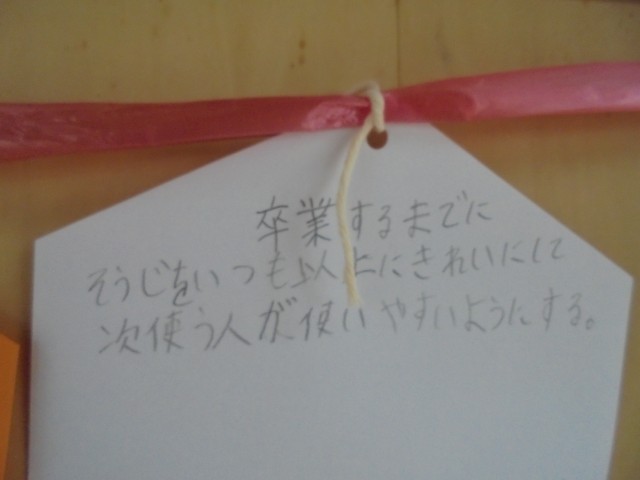 卒業するまでに
そうじをいつも以上にきれいにして
次使う人が使いやすいようにする。